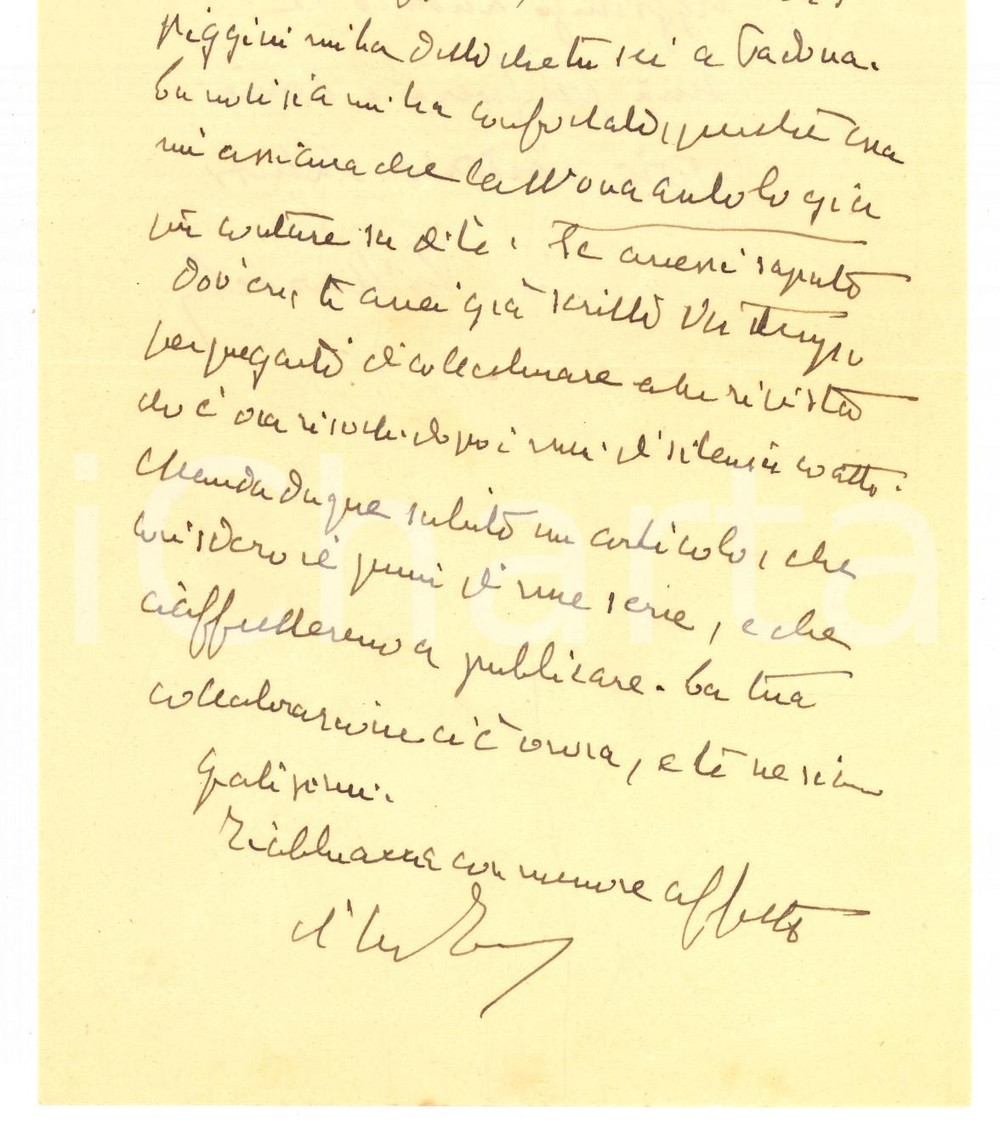 mi ha detto che tu sei a Padova.
La notizia mi ha confortato, perché essa
mi assicura che la Nuova Antologia
può contare su di te. Se avessi saputo
dov'eri, ti avrei già scritto un tempo
per pregarti di collaborare alla rivista
che è ora risorta dopo i mesi di silenzio coatto.
Manda dunque subito un articolo, che
considero il primo di una serie, e che
ci affretteremo a pubblicare. La tua
collaborazione ci è onora, e te ne siamo
gratissimi.
Ti abbraccia con memore affetto
iCharta